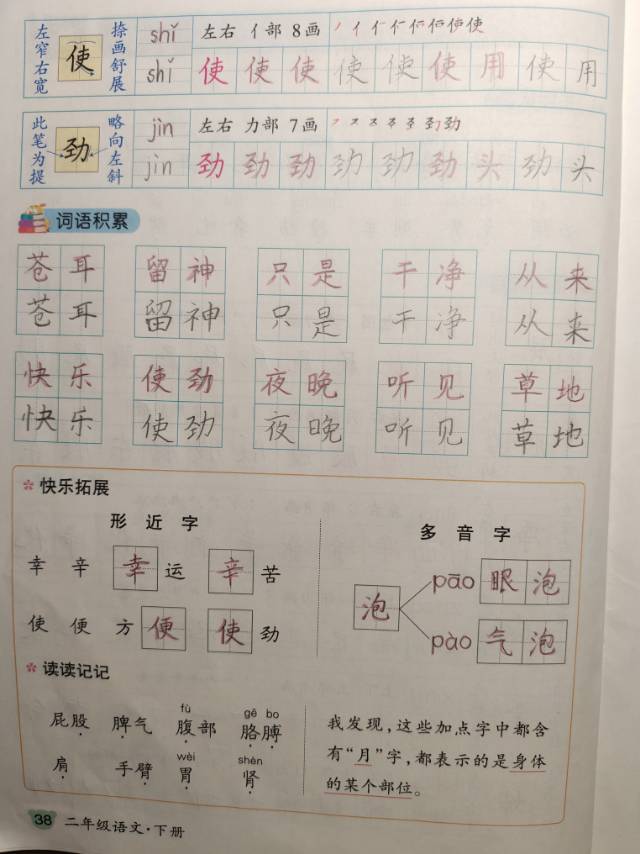 左窄右宽 使 捺画舒展 shǐ 左右 亻部 8画
shǐ 使 使 使 使 使 使 用 使 用
此笔为提 劲 略向左斜 jìn 左右 力部 7画
jìn 劲 劲 劲 劲 劲 劲 头 劲 头
词语积累
苍耳 留神 只是 干净 从来
苍耳 留神 只是 干净 从来
快乐 使劲 夜晚 听见 草地
快乐 使劲 夜晚 听见 草地
快乐拓展
形近字
幸 辛 幸运 辛苦
使 便 方便 使劲
多音字
泡 pāo 眼泡
pào 气泡
读读记记
fù gē bo
屁股 脾气 腹部 胳膊
wèi shèn
肩 手臂 胃 肾
我发现，这些加点字中都含
有“月”字，都表示的是身体
的某个部位。
38 二年级语文·下册